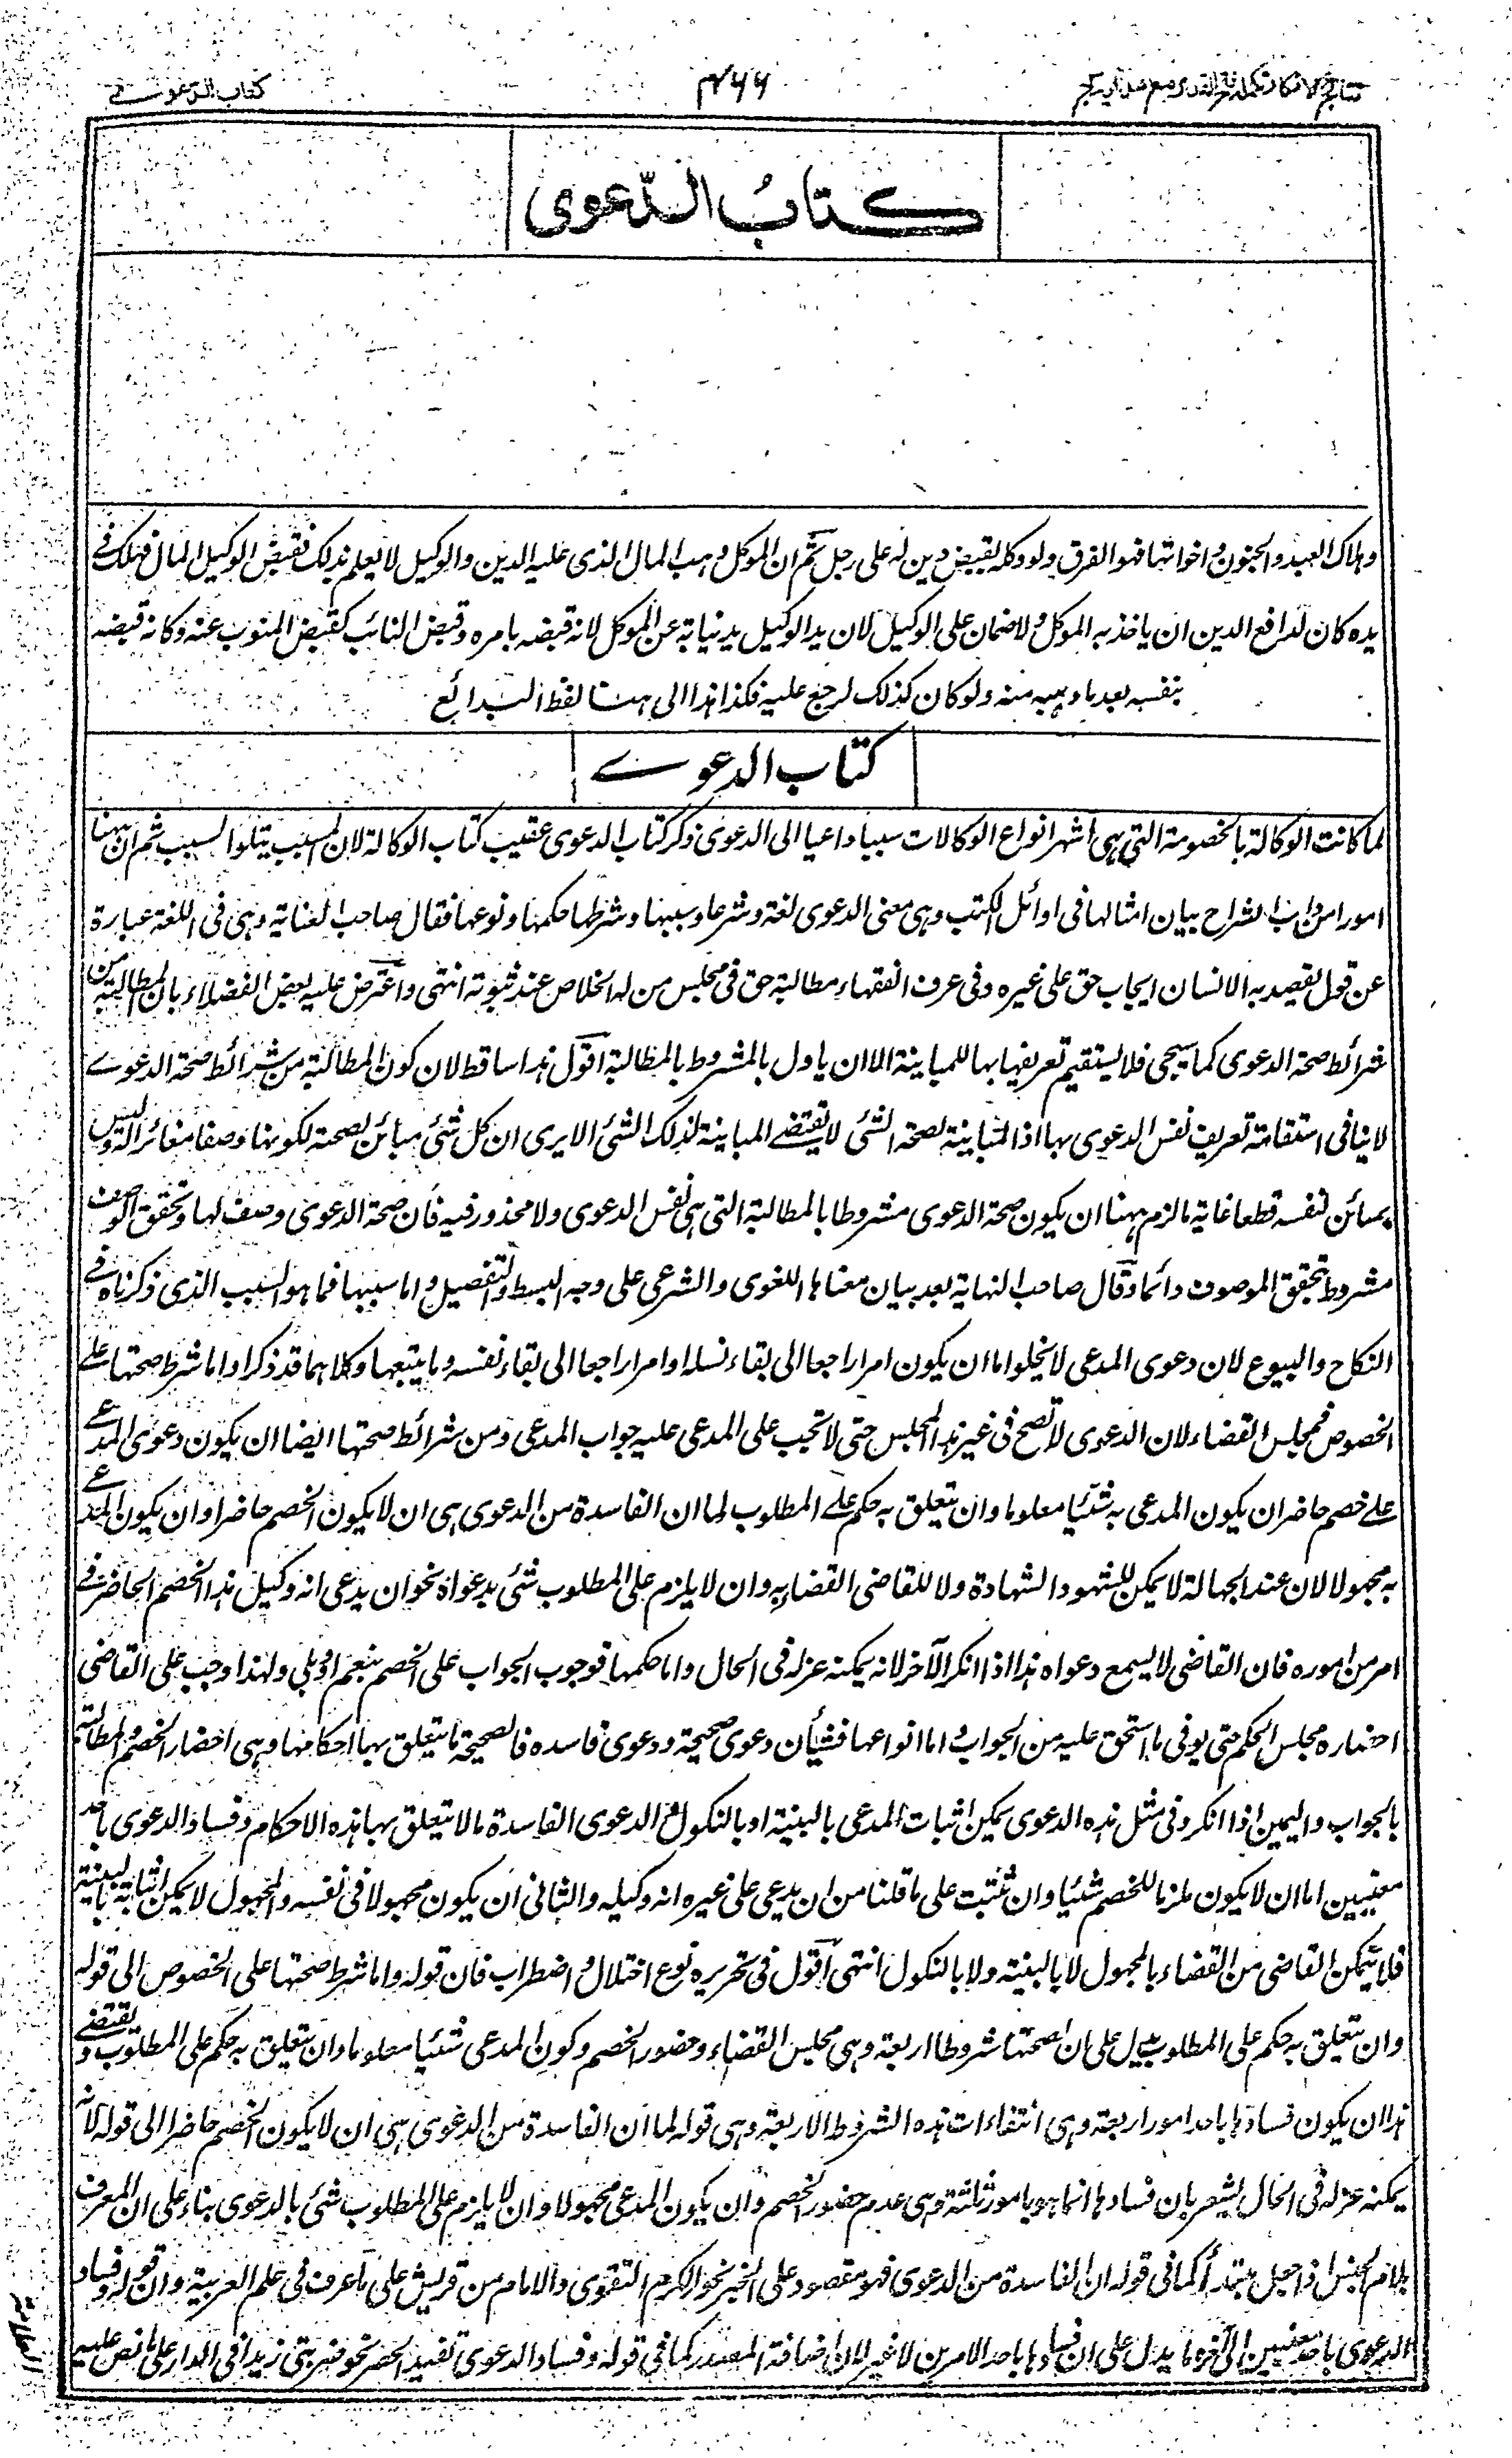 نتائج الافكار تكملة فتح القدير مع هدايه ج
٤٦٦
كتاب الدعوے
كتابُ الدّعوى
وهلاك العبد والجنون واخواتها فهو الفرق ولو وكله بقبض دين له على رجل ثم ان الموكل وهب المال الذى عليه الدين والوكيل لا يعلم بذلك فقبض الوكيل المال فهلك فے
يده كان لدافع الدين ان ياخذ به الموكل ولا ضمان على الوكيل لان يد الوكيل يد نيابة عن الموكل لانه قبضه بامره وقبض النائب كقبض المنوب عنه وكانه قبضه
بنفسه بعد ما وهبه منه ولو كان كذلك لرجع عليه فكذا هذا الى هنا لفظ البدائع
كتاب الدعوے
لما كانت الوكالة بالخصومة التى هى اشهر انواع الوكالات سببا داعيا الى الدعوى ذكر كتاب الدعوى عقيب كتاب الوكالة لان المسبب يتلوا السبب ثم ان ههنا
امورا من داب الشراح بيان امثالها فى اوائل الكتب وهى معنى الدعوى لغة وشرعا وسببها وشرطها حكمها ونوعها فقال صاحب العناية وهى فى اللغة عبارة
عن قول يقصد به الانسان ايجاب حق على غيره وفى عرف الفقهاء مطالبة حق فى مجلس من له الخلاص عند ثبوته انتهى واعترض عليه بعض الفضلاء بان المطالبة من
شرائط صحة الدعوى كما سيجى فلا يستقيم تعريفها بها للمباينة الا ان ياول بالمشروط بالمطالبة اقول هذا ساقط لان كون المطالبة من شرائط صحة الدعوے
لا ينافى استقامة تعريف نفس الدعوى بها اذ المباينة لصحة الشئ لا تقتضے المباينة لذلك الشئ الا يرى ان كل شئ مبائن لصحته لكونها وصفا مغائرا له وليس
بمبائن لنفسه قطعا غاية ما لزم ههنا ان يكون صحة الدعوى مشروطا بالمطالبة التى هى نفس الدعوى ولا محذور فيه فان صحة الدعوى وصف لها وتحقق الوصف
مشروط بتحقق الموصوف دائما وقال صاحب النهاية بعد بيان معناها اللغوى والشرعى على وجه البسط والتفصيل واما سببها فما هو السبب الذى ذكرناه فے
النكاح والبيوع لان دعوى المدعى لا يخلوا اما ان يكون امرا راجعا الى بقاء نسله او امرا راجعا الى بقاء نفسه وما يتبعها وكلاهما قد ذكرا واما شرط صحتها علے
الخصوص فمجلس القضاء لان الدعوى لا تصح فى غير هذا المجلس حتى لا تجب على المدعى عليه جواب المدعى ومن شرائط صحتها ايضا ان يكون دعوى المدعے
علے خصم حاضر ان يكون المدعى به شئيا معلوما وان يتعلق به حكم علے المطلوب لما ان الفاسدة من الدعوى هى ان لا يكون الخصم حاضرا وان يكون المدعے
به مجهولا لان عند الجهالة لا يمكن للشهود الشهادة ولا للقاضى القضاء به وان لا يلزم على المطلوب شئ بدعواه نحو ان يدعى انه وكيل هذا الخصم الحاضر فے
امر من اموره فان القاضى لا يسمع دعواه هذا اذا انكر الآخر لانه يمكنه عزله فى الحال واما حكمها فوجوب الجواب على الخصم بنعم او بلى ولهذا وجب على القاضى
احضاره مجلس الحكم حتى يوفى ما استحق عليه من الجواب واما انواعها فشيآن دعوى صحيحة ودعوى فاسده فالصحيحة ما يتعلق بها احكامها وهى احضار الخصم والمطالبة
بالجواب واليمين اذا انكر وفى مثل هذه الدعوى يمكن اثبات المدعى بالبينة او بالنكول والدعوى الفاسدة ما لا يتعلق بها هذه الاحكام وفساد الدعوى باحد
معنيين اما ان لا يكون ملزما للخصم شئيا وان ثبتت على ما قلنا من ان يدعى على غيره انه وكيله والثانى ان يكون مجهولا فى نفسه والمجهول لا يمكن اثباته بالبينة
فلا يتمكن القاضى من القضاء بالمجهول لا بالبينة ولا بالنكول انتهى اقول فى تحريره نوع اختلال واضطراب فان قوله واما شرط صحتها على الخصوص الى قوله
وان يتعلق به حكم على المطلوب يدل على ان لصحتها شروطا اربعة وهى مجلس القضاء وحضور الخصم وكون المدعى شئيا معلوما وان يتعلق به حكم على المطلوب ويقتضے
هذا ان يكون فسادها باحد امور اربعة وهى انتفاءات هذه الشروط الاربعة وهى قوله لما ان الفاسدة من الدعوى هى ان لا يكون الخصم حاضرا الى قوله لانه
يمكنه عزله فى الحال يشعر بان فسادها انما هو بامور ثلثة وهى عدم حضور الخصم وان يكون المدعى مجهولا وان لا يلزم على المطلوب شئ بالدعوى بناء على ان المعرف
بلام الجنس اذا جعل مبتدأ كما فى قوله ان الفاسدة من الدعوى فهو مقصود على الخبر نحو الكرم التقوى والامام من قريش على ما عرف فى علم العربية وان قوله وفساد
الدعوى باحد معنيين الى آخره ما يدل على ان فسادها باحد الامرين لا غير لان اضافة المصدر كما فى قوله وفساد الدعوى تفيد الحصر نحو ضربتى زيدا فى الدار على ما نص عليه